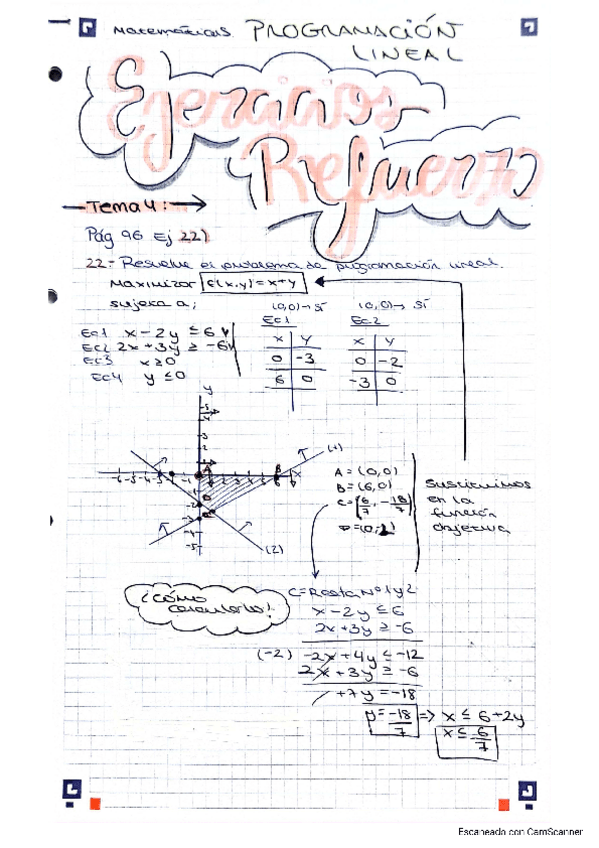 Matemáticas. PROGRAMACIÓN
LINEAL
Ejercicios
Refuerzo
Tema 4:
Pág 96 Ej 22)
22- Resuelve el problema de programación lineal.
Maximizar f(x,y)=x+y
sujeta a;
Ec1 x-2y ≤ 6
Ec2 2x+3y ≥ -6
Ec3 x≥0
Ec4 y ≤0
(0,0)→ sí
Ec1
x y
0 -3
6 0
(0,0)→ sí
Ec2
x y
0 -2
-3 0
y
(1)
(2)
A=(0,0)
B=(6,0)
C=(6/7, -18/7)
D=(0,-2)
Sustituimos
en la
función
objetiva
¿Cómo
calcularlos!
C=Recta Nº1y2
x-2y ≤6
2x+3y ≥ -6
(-2) -2x+4y ≤ -12
2x+3y ≥ -6
+7y = -18
y= -18/7 => x ≤ 6+2y
x ≤ 6/7
Escaneado con CamScanner